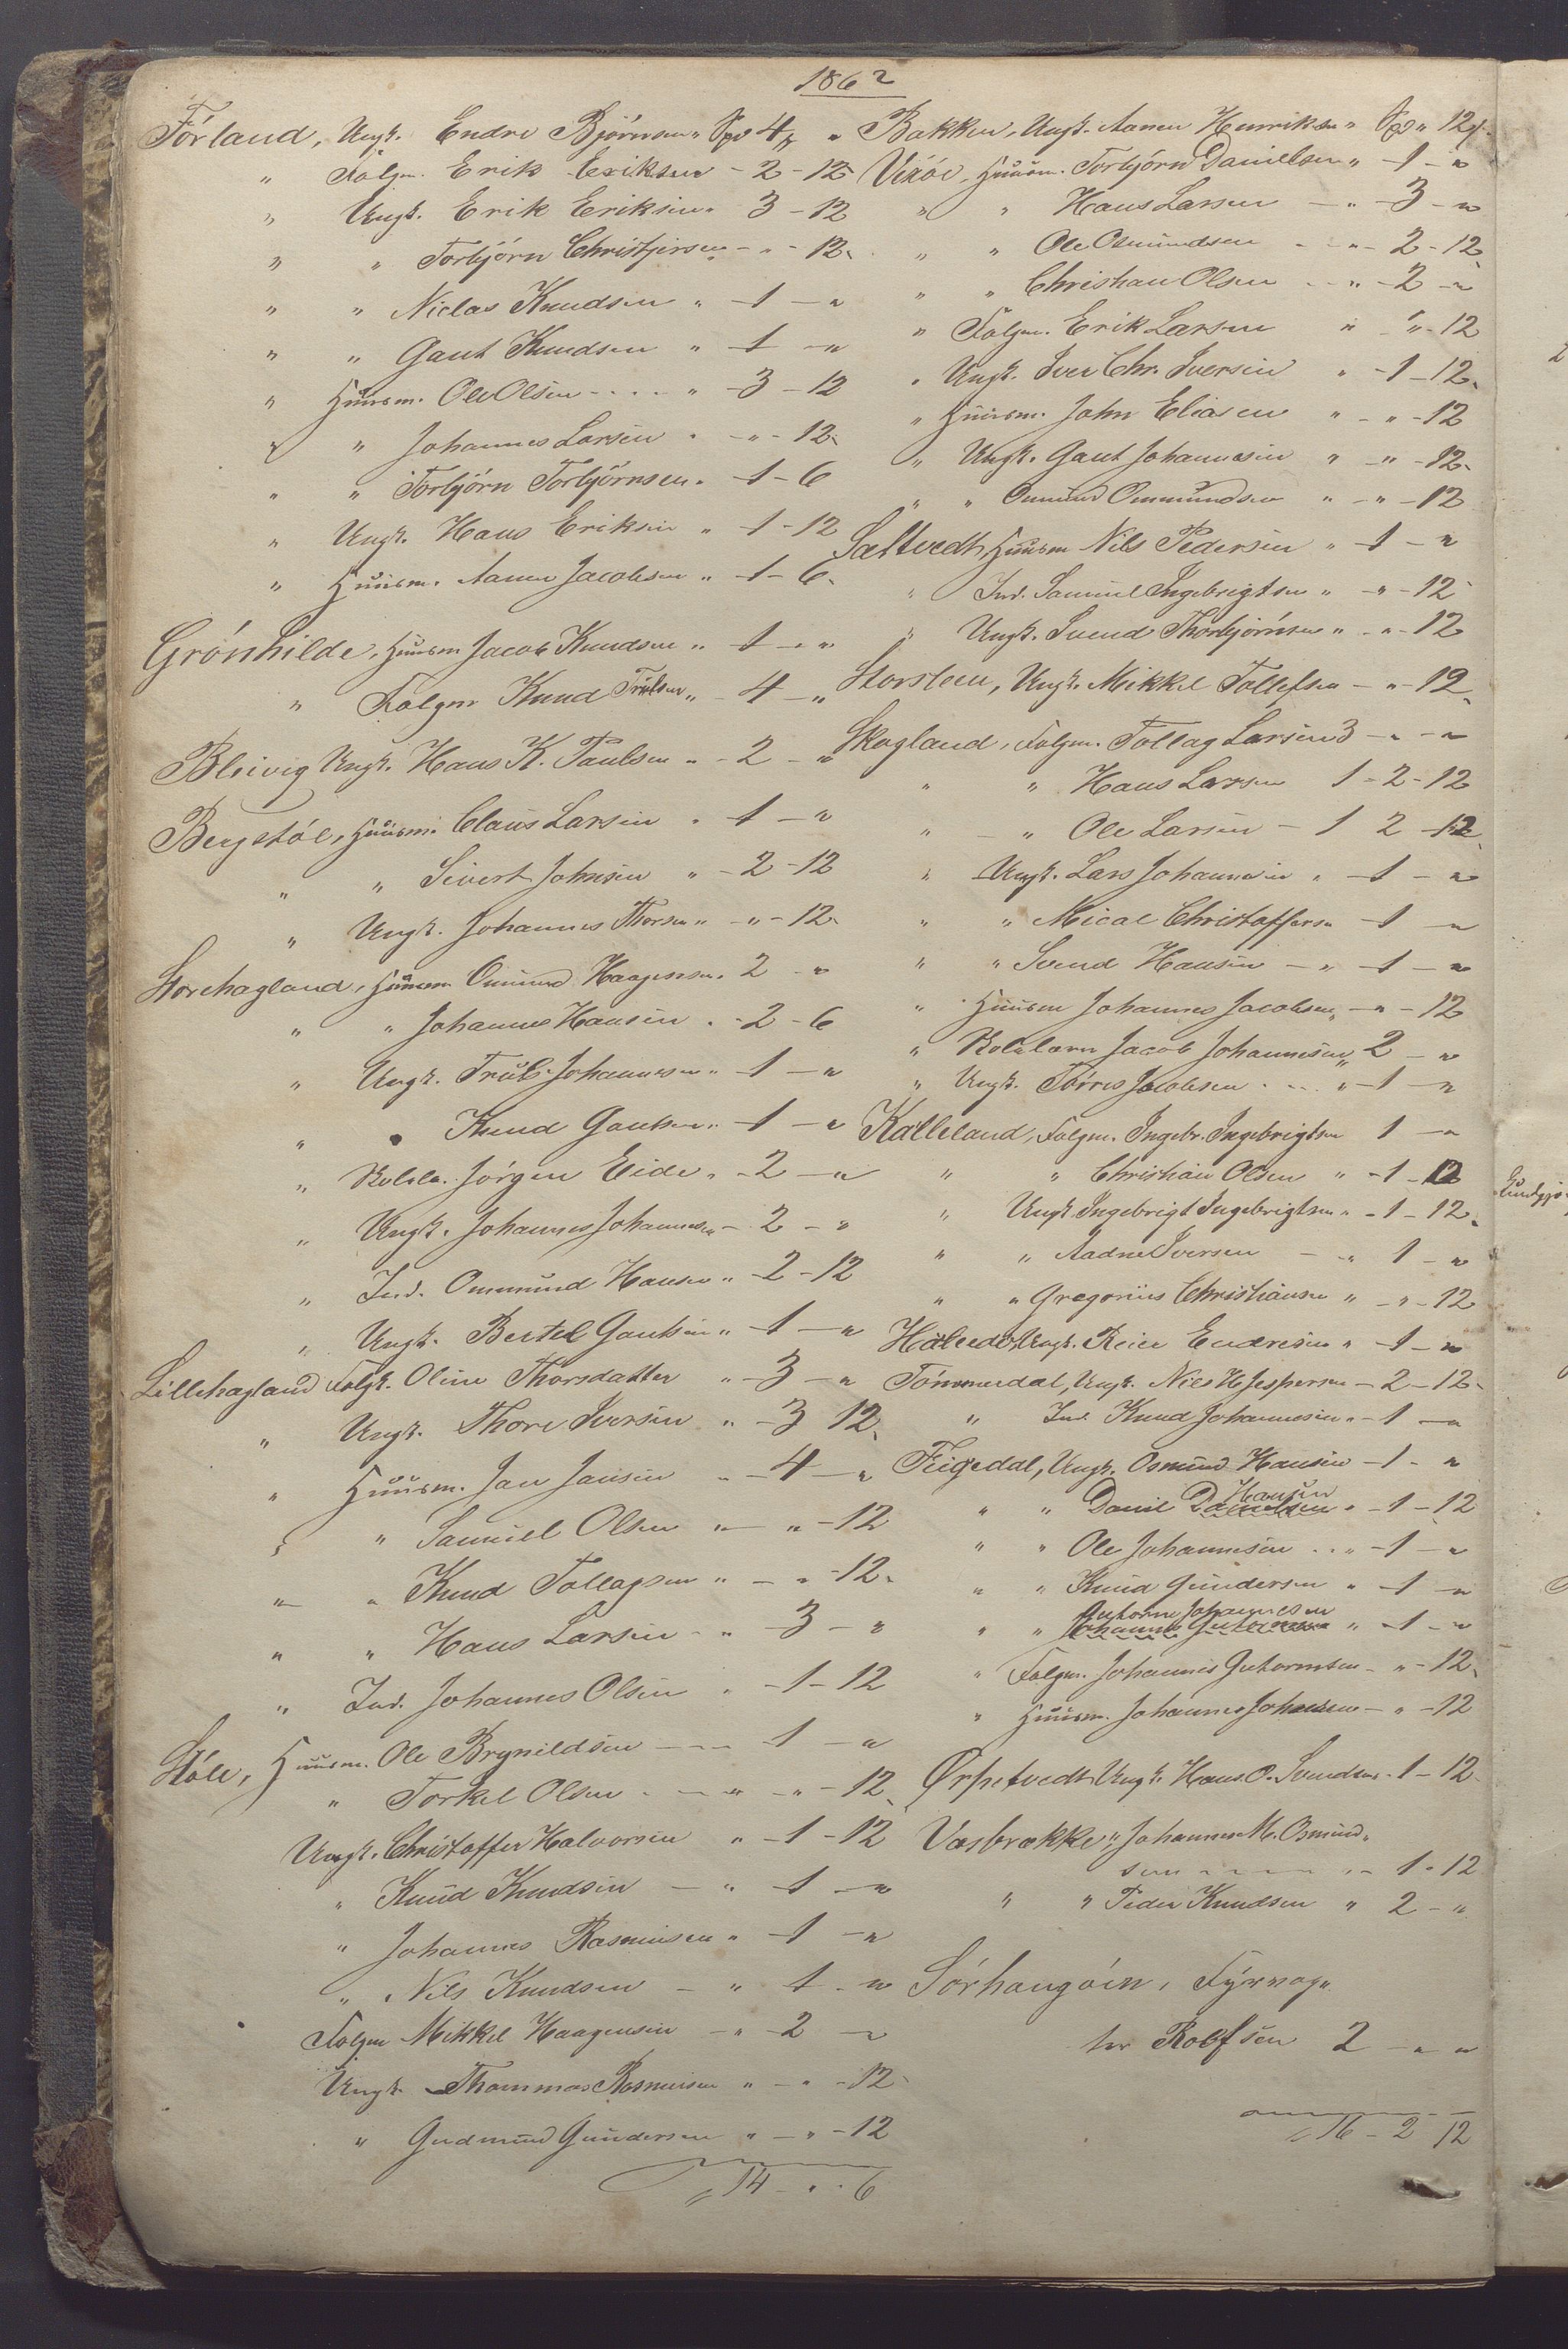 1862
Förland, Ungk. Endre Björnsen " Spd 4 ß "
" Folgm. Erik Eriksen - 2 - 12
" Ungk. Erik Eriksen " 3 - 12
" " Torbjörn Christjersen - " - 12
" " Niclas Knudsen " - 1 - "
" " Gaut Knudsen " - 1 - "
" Huusm. Ole Olsen - - - " - 3 - 12
" " Johannes Larsen " - " - 12
" " Torbjörn Torbjörnsen " - 1 - 6
" Ungk. Hans Eriksen " - 1 - 12
" Huusm. Aanen Jacobsen " - 1 - 6
Grönhilde, Huusm Jacob Knudsen " - 1 - "
" Folgm Knud Trulsen " - 4 - "
Bleivig Ungk. Hans K. Paulsen " - 2 - "
Bergstöl, Huusm. Claus Larsen " - 1 - "
" " Sivert Johnsen " - 2 - 12
" Ungk. Johannes Thorsen " - " - 12
Storehagland, Huusm Ommund Haagensen " 2 - "
" " Johannes Hansen " - 2 - 6
" Ungk. Truls Johannesen " - 1 - "
" " Knud Gautsen " - 1 - "
" Jörgen Eide " - 2 - "
" Ungk. Johannes Johannesen - 2 - "
" Ind. Ommund Hansen " - 2 - 12
" Ungk. Bertel Gautsen " - 1 - "
Lillehagland Folgk. Oline Thorsdatter " - 3 - "
" Ungk. Thore Iversen " - 3 12
" Huusm. Jan Jansen " - 4 - "
" " Samuel Olsen " - " - 12
" " Knud Tollagsen " - " - 12
" " Hans Larsen - " - 3 - "
" Ind. Johannes Olsen " - 1 - 12
Stöle, Huusm. Ole Brynildsen - - 1 - "
" Torkel Olsen - - " - " - 12
Ungk. Christoffer Halvorsen " - 1 - 12
" Knud Knudsen - " - 1 - "
" Johannes Rasmusen " - 1 - "
" Nils Knudsen - " 1 - "
Folgm Mikkel Haagensen - " - 2 - "
Ungk Thommas Rasmusen " - " - 12
" Gudmund Gundersen " - " - 12
14 - " - 6
Bakken, Ungk. Aanen Henriksen " Spd " 12 ß
Vixöe, Huusm. Torbjörn Danielsen " - 1 - "
" " Hans Larsen - " - 3 - "
" " Ole Osmundsen - - " - 2 - 12
" " Christian Olsen - - " - 2 - "
" Folgm. Erik Larsen " - " - 12
" Ungk. Iver Chr. Iversen " - 1 - 12
" Huusm. John Eliasen " - " - 12
" Ungk. Gaut Johannesen " - " - 12
" " Ommund Ommundsen " - " - 12
Saltvedt, Huusm Nils Pedersen " - 1 - "
" Ind. Samuel Ingebrigtsen " - " - 12
" Ungk. Svend Thorbjörnsen " - " - 12
Storsteen, Ungk. Mikkel Tollefsen - " - 12
Skogland, Folgm. Tollag Larsen 3 - " - "
" " Hans Larsen 1 - 2 - 12
" - " Ole Larsen - 1 2 - 12
" Ungk. Lars Johannesen " - 1 - "
" " Mical Christoffersen - 1 - "
" " Svend Hansen - " - 1 - "
" Huusm Johannes Jacobsen " - " - 12
" Jacob Johannesen " 2 - "
" Ungk. Törres Jacobsen - - " - 1 - "
Kalleland, Folgm. Ingebr. Ingebrigtsen 1 - "
" " Christian Olsen " - 1 - 12
" Ungk Ingebrigt Ingebrigtsen " - 1 - 12
" " Aadne Iversen - " 1 - "
" " Gregorius Christiansen " - " - 12
Ungk. Reier Endresen " - 1 - "
Tömmerdal, Ungk. Niels H. Jespersen - 2 - 12
" Ind. Knud Johannesen " - 1 - "
Feigedal, Ungk. Osmund Hansen - 1 - "
Hansen
" " Daniel Danielsen " - 1 - 12
" " Ole Johannesen - - " - 1 - "
" " Knud Gundersen " - 1 - "
Gutorm Johannesen
" " Johannes Gutormsen " - 1 - "
" Folgm. Johannes Gutormsen - " - 12
" Huusm. Johannes Johnsen - " - 12
Ørpetvedt Ungk. Hans O. Svendsen - 1 - 12
Vasbrække " Johannes M. Osmund"
sen - - - - " - 1 - 12
" " Peder Knudsen " 2 - "
Sörhaugöen, Fyrvog"
ter Rolfsen 2 - " "
16 - 2 12